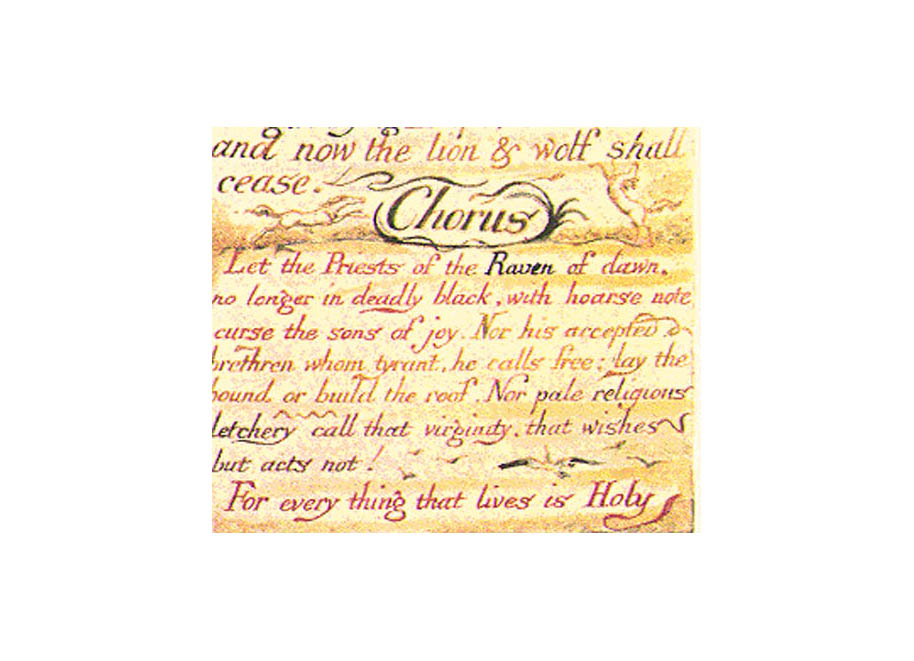 and now the lion & wolf shall
cease.
Chorus
Let the Priests of the Raven of dawn,
no longer in deadly black, with hoarse note
curse the sons of joy. Nor his accepted
brethren whom, tyrant, he calls free: lay the
bound or build the roof. Nor pale religious
letchery call that virginity, that wishes
but acts not!
For every thing that lives is Holy